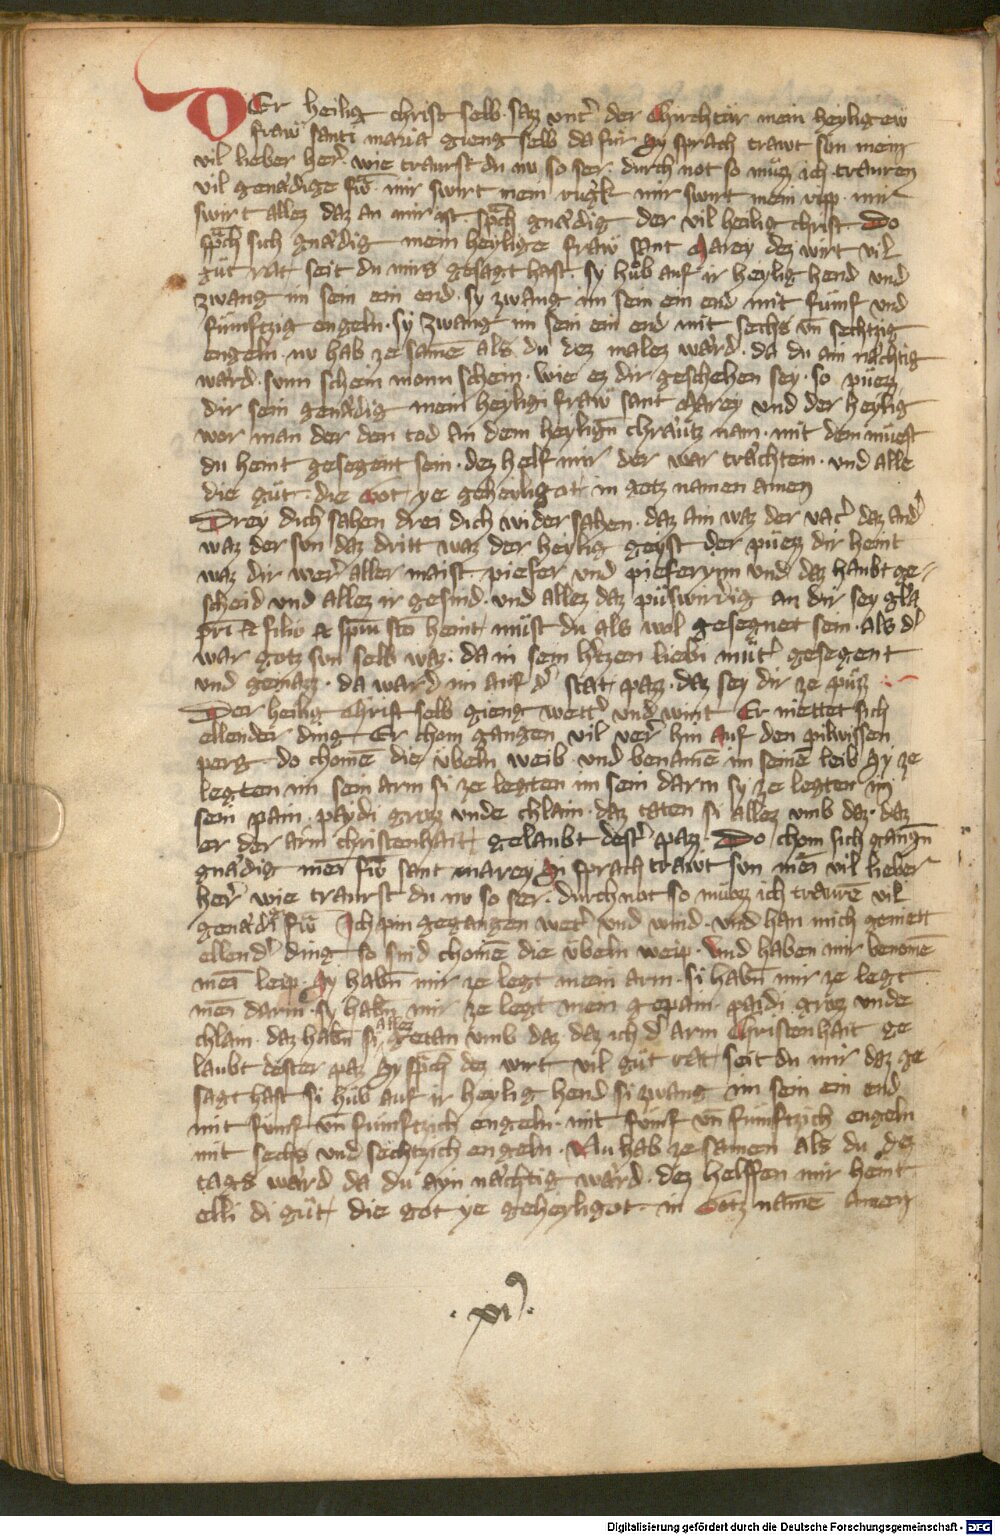 DEr heilig christ selb saz vnt̄ der Chirchtür mein heyligew
fraw santi maria gieng selb da für Sy sprach trawt sun mein
vil lieber her̄ wie traurst du nv so ser · durch not so müzz ich trauren
vil genädige fw̄ · mir swirt mein rugk mir swirt mein ripp · mir
swirt allez daz an mir ist sp̄ch gnädig der vil heilig christ Do
sp̄ch sich gnädig mein heylige fraw sant Marey dez wirt vil
güt rat seit du mirs gesagt hast · sy hůb auf ir heylig hend und
zwang im sein ein end · sy zwang im sein ein end mit fümf und
fümftzig engeln · sy zwang im sein ein end mit sechs vn̄ sechtzig
engeln · nv hab ze same̅ als du dez malez ward · da du ain nächtig
ward · sunn schein monn schein · wie ez dir geschehen sey · so püezz
dir sein genädig mein heylign fraw sant Marey und der heylig
wor man der den tod an dem heylign̄ chräutz nam · mit dem müest
du heint gesegent sein · dez helf mir der war trächtein · und alle
die güt · die Got ye geheyligot in gotz namen amen
Drey dich sahen drei dich wider sahen · daz ain waz der vat̄ daz and̄
waz der sun daz dritt waz der heylig geyst der püezz dir heint
waz dir wer̄ aller maist · piefer und pieferynn und daz haubt ge-
scheid und allez ir gesind · und allez daz püswirdig an dir sey gl̄a
pr̄i & filio & sp̄iu sc̄o heint müst du als wol gesegnet sein · als d̄
war gotz sun selb waz · da in sein h̄tzen liebn müt̄ gesegent
und gemazz · da ward im auf d̄ stat pazz · daz sey dir ze püzz
Der heilig Christ selb gieng wett̄ und wint Er niettet sich
ellender ding Er chom gangen vil ver hin auf den pilwissen
perg do chome̅ die übeln weib · und bename̅ im seine̅ leib Sy ze
legten im sein arm si ze legten im sein darm sy ze legten im
sein pain · paydi grozz unde chlain · daz taten si allez umb daz · daz
er der arm christenhait gelaubt dest̄ pazz · Do chom sich gangn̄
gnädig mei̅ fw̄ sant marey Si sprach trawt sun mei̅ vil lieber
her̄ wie traurst du nv so ser · durch not so müezz ich traure̅ vil
genädi fw̄ Ich pin gegangen wet̄ und wind · und han mich geniett
ellend̄ ding so sind chome̅ die übeln weip · Und haben mir benome̅
mei̅ leip · Sy habn̄ mir ze legt mein arm · si habn̄ mir ze legt
mei̅ darm · sy habn̄ mir ze legt mein gepain · paidi grozz unde
chlain · daz habn̄ si allez getan umb daz · daz ich d̄ arm Christenhait ge
laubt dester paz Sy sp̄ch dez wirt vil güt rat seit du mir daz ge
sagt hast si hůb auf ir heylig hend si zwang im sein ein end
mit fümf vn̄ fümftzich engeln · mit fümf vn̄ fümftzich engeln
mit sechs und sechtzich engeln · Nu hab ze samen als du dez
tags ward da du ayn nächtig ward · dez helffen mir heint
elli di güt die got ye geheyligot · in Gotz name̅ Amen
· xi9 ·
Digitalisierung gefördert durch die Deutsche Forschungsgemeinschaft - DFG